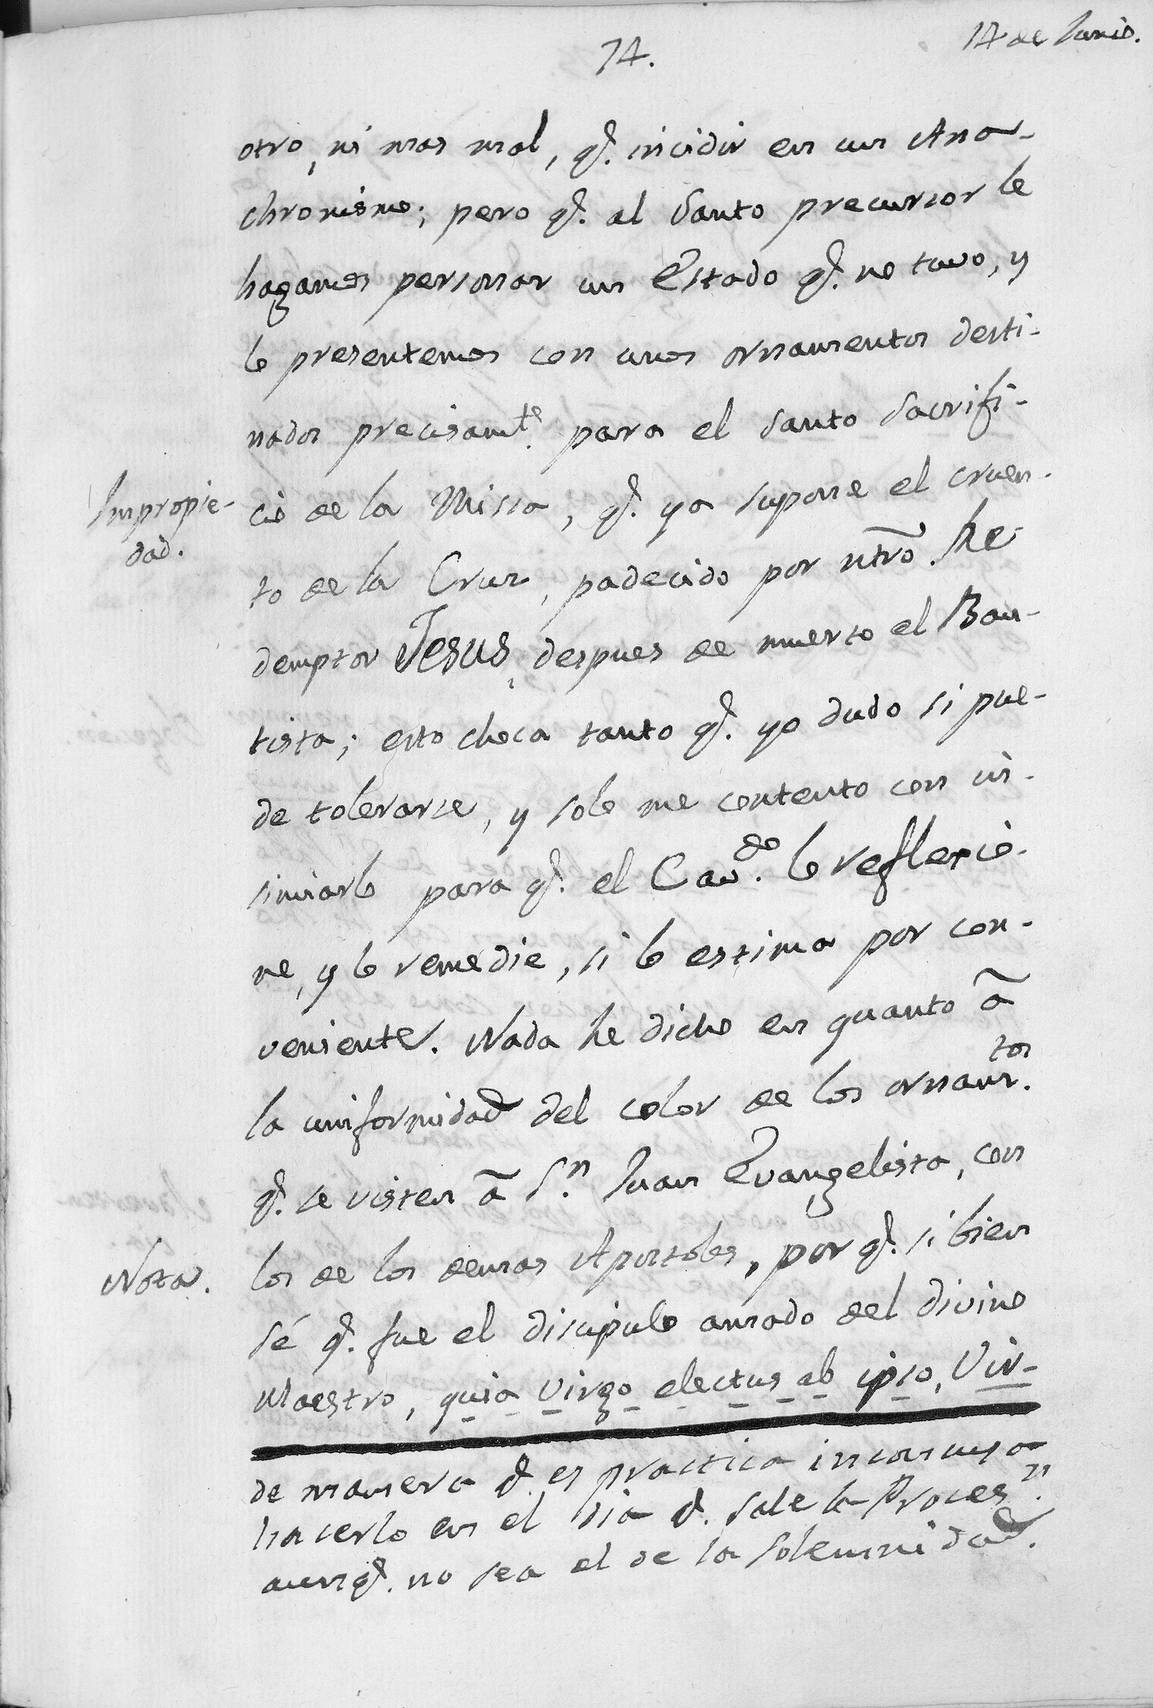 74.
14 de Junio.
otro, ni mas mal, q.e incidir en un Ana-
chronismo; pero q.e al Santo precursor le
hagamos personar un Estado q.e no tuvo, y
lo presentemos con unos ornamentos desti-
nados precisam.te para el Santo Sacrifi-
Impropie-
dad.
cio de la Missa, q.e ya supone el cruen-
to de la Cruz, padecido por ntrõ. Re-
demptor Jesus, despues de muerto el Bau-
tista; esto choca tanto q.e yo dudo si pue-
de tolerarse, y solo me contento con in-
sinuarlo para q.e el Cav.do lo reflexio-
ne, y lo remedie, si lo estima por con-
veniente. Nada he dicho en quanto â
la uniformidad del color de los ornam.tos
q.e se visten â S.n Juan Evangelista, con
Nota.
los de los demas Apostoles, por q.e si bien
sé q.e fue el discipulo amado del divino
Maestro, quia Virgo electus ab ipso, Vir-
de manera q.e es practica inconcusa
hacerlo en el dia q.e sale la Proces.n
aunq.e no sea el de la solemnidad.